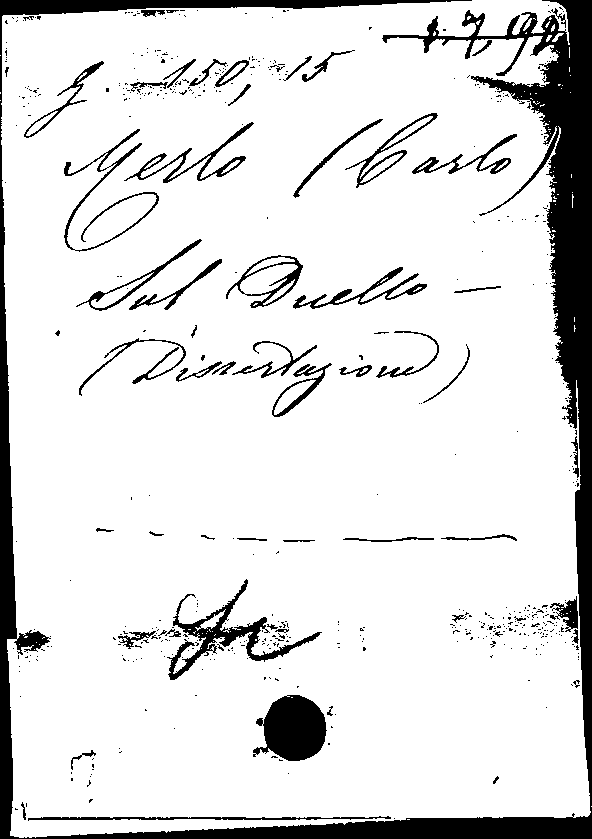 g. 150, 15
Merlo (Carlo)
Sul Duello —
(Dissertazione)